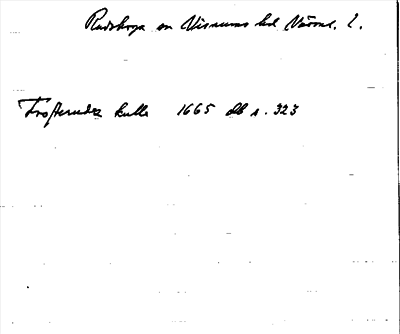 Rudskoga sn Visnums hd Värml. l.
Trosterudz kulle 1665 db s. 323